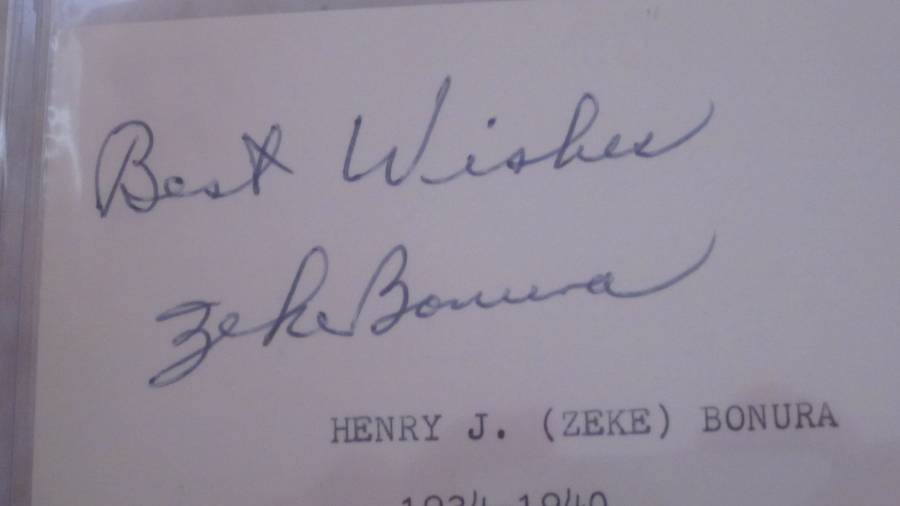 Best Wishes
Zeke Bonura
HENRY J. (ZEKE) BONURA
1934-1940